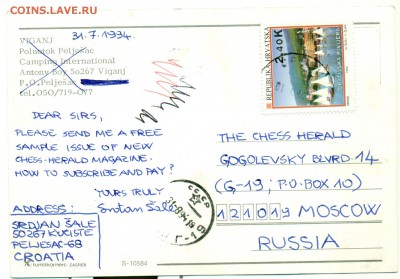 COINS.SU
VIGANJ
Poluotok Pelješac
Camping International
Antony Boy 50267 Viganj
P.O.Pelješac
tel.050/719-077
31.7.1994.
REPUBLIKA HRVATSKA
2.40K
DEAR SIRS,
PLEASE SEND ME A FREE
SAMPLE ISSUE OF NEW
CHESS-HERALD MAGAZINE.
HOW TO SUBSCRIBE AND PAY?
YOURS TRULY
Srđan Šale
ADDRESS:
SRDJAN ŠALE
50267 KUČIŠTE
PELJEŠAC-68
CROATIA
THE CHESS HERALD
GOGOLEVSKY BLVRD 14
(G-19; P.O.BOX 10)
121019 MOSCOW
RUSSIA
СССР
turistkomerc zagreb
S-10584